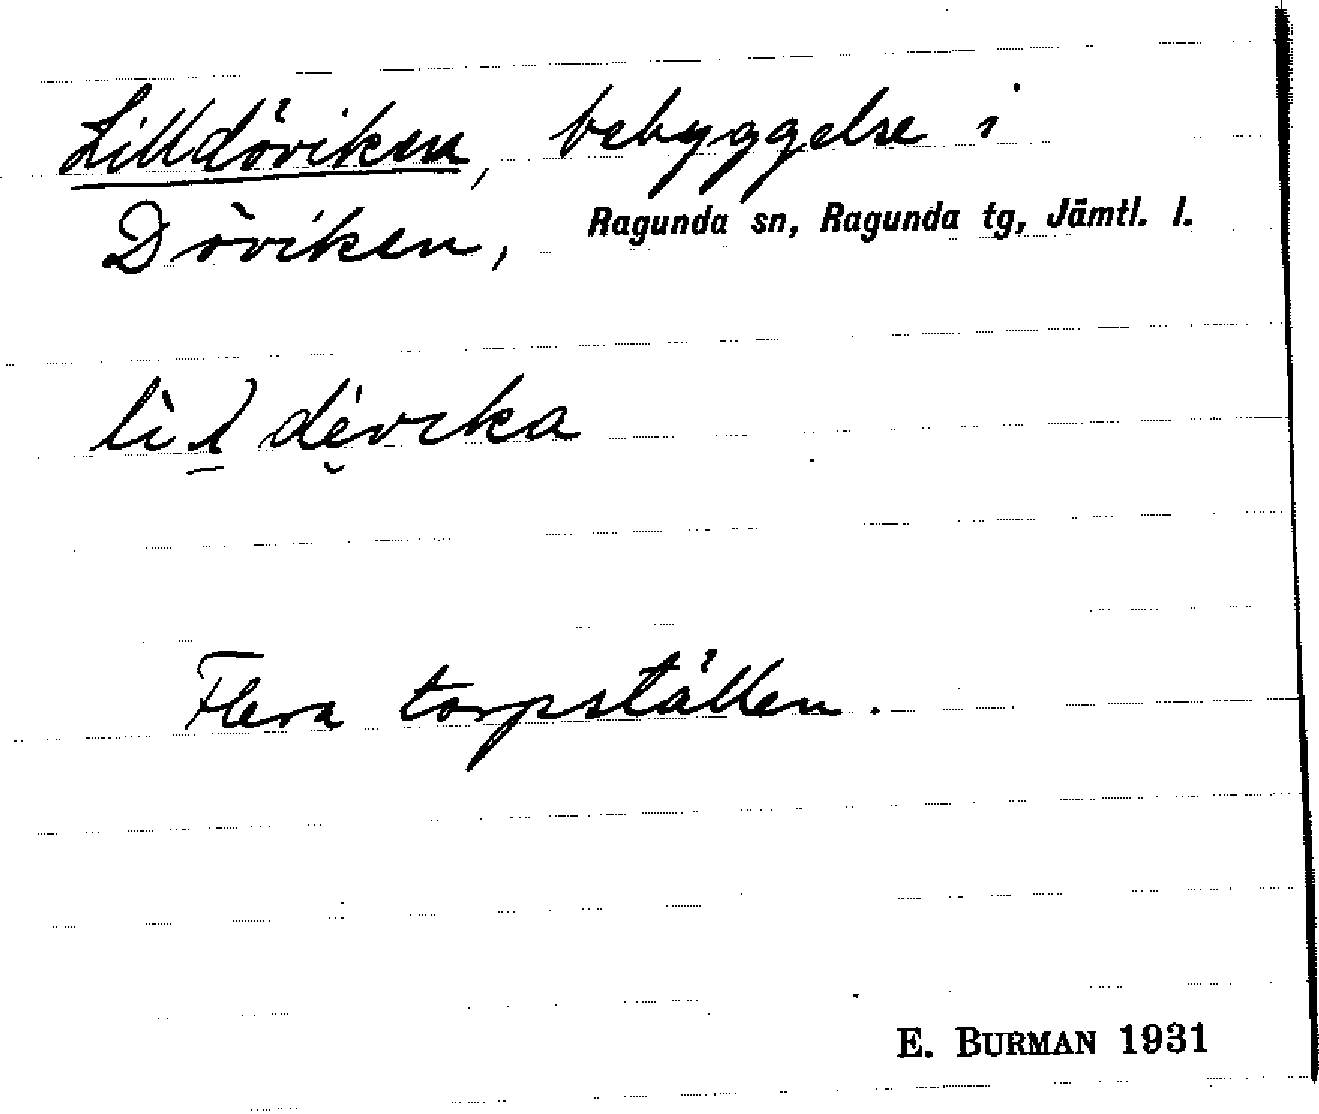 Lilldöviken, bebyggelse i
Döviken, Ragunda sn, Ragunda tg, Jämtl. l.
Flera torpställen.
E. BURMAN 1931